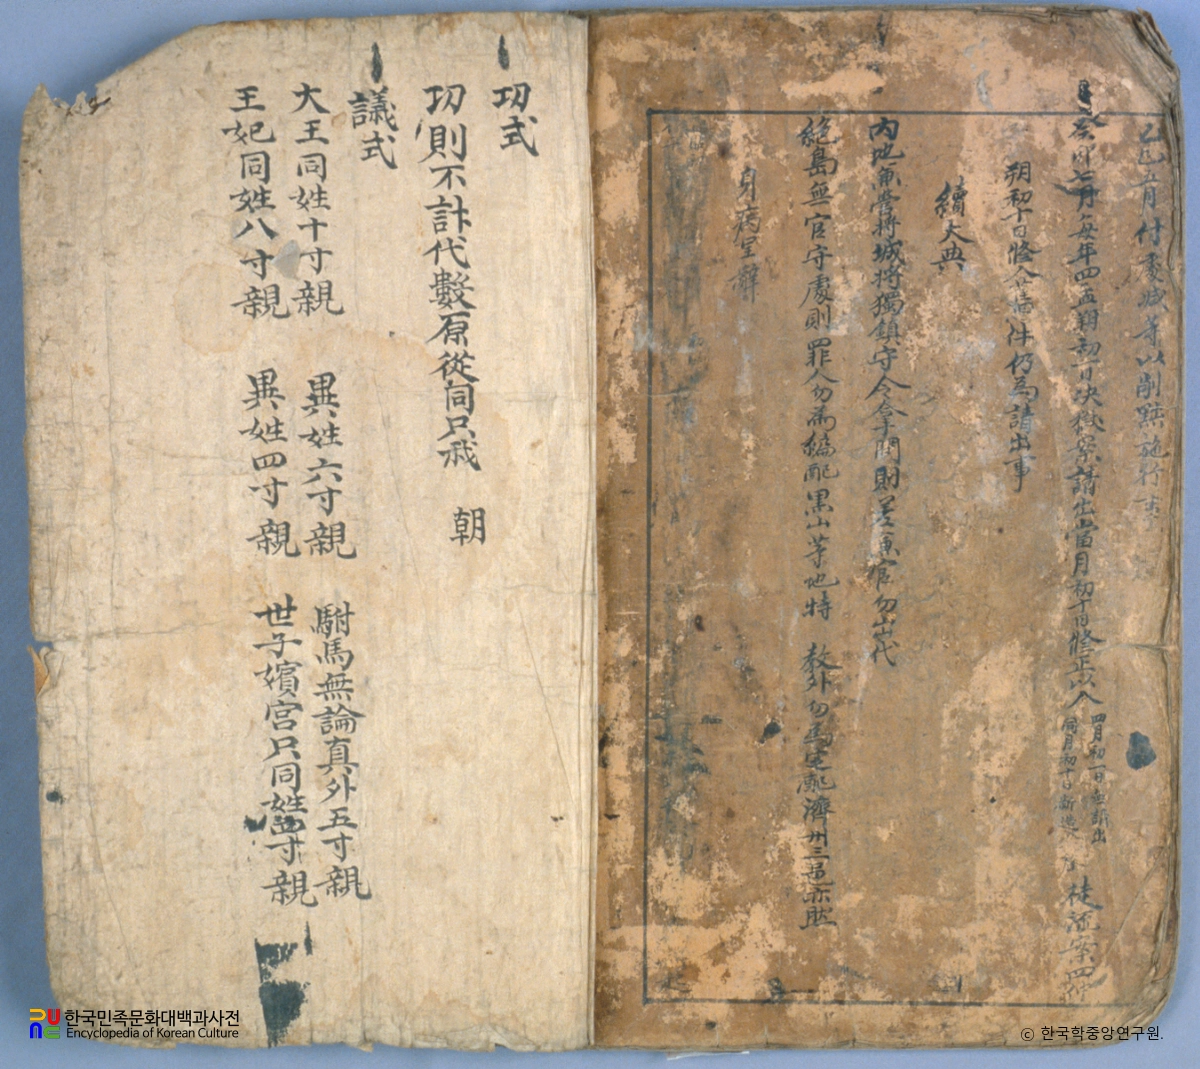 乙巳五月付處減等以削黜施行事
癸卯七月每年四孟朔初一日決獄案請出當月初十日修正以入
四月初一日無請出
同月初十日新選
徒流案四
朔初十日修今
件仍爲請出事
續大典
內地兼營將城將獨鎭守令拿問則差兼官勿出代
絶島無官守處則罪人勿爲編配黑山等地特 敎外勿爲定配濟州三邑亦然
身病呈辭
功式
功則不計代數原從同只哉 朝
議式
大王同姓十寸親 異姓六寸親 駙馬無論眞外五寸親
王妃同姓八寸親 異姓四寸親 世子嬪宮只同姓四寸親
한국민족문화대백과사전
Encyclopedia of Korean Culture
ⓒ 한국학중앙연구원.